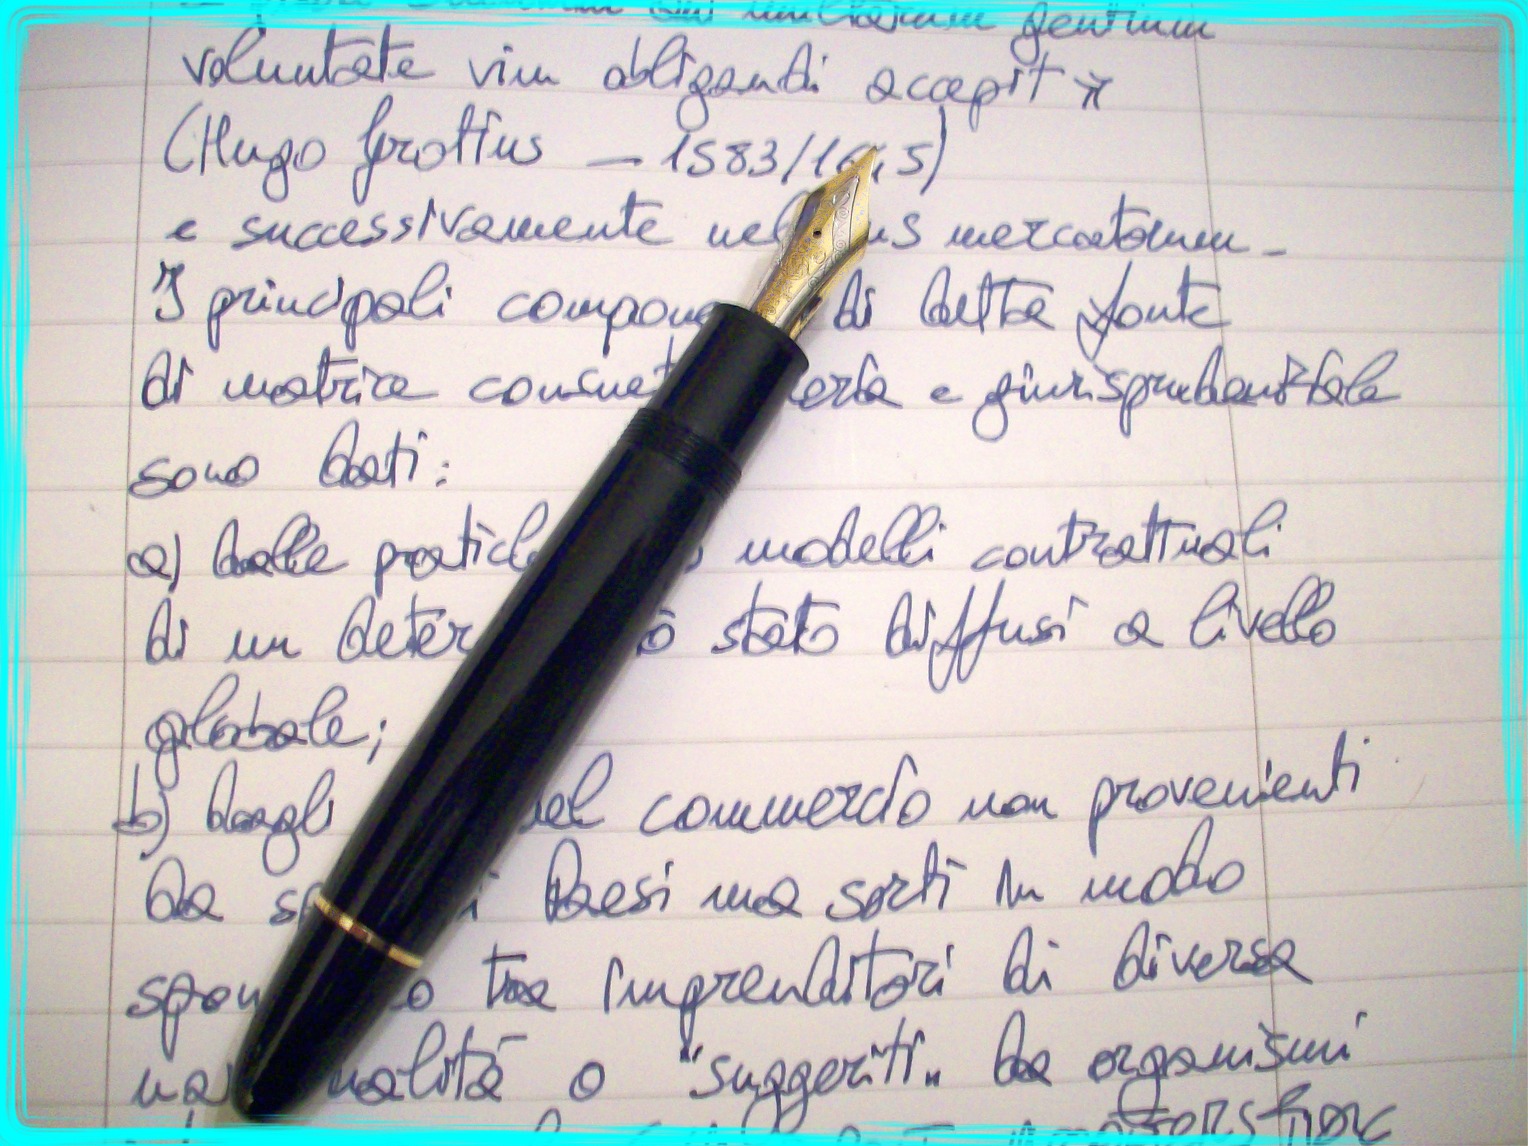 gentium
voluntate vim obligandi accepit »
(Hugo Grotius — 1583/16 5)
e successivamente nel us mercatorum -
I principali compone di detta fonte
di matrice consuet e giurisprudenziale
sono dati:
a) dalle pratiche modelli contrattuali
di un deter o stato diffusi a livello
globale;
b) dagli del commercio non provenienti
da s i Paesi ma sorti in modo
spon o tra imprenditori di diversa
na nalità o "suggeriti" da organismi